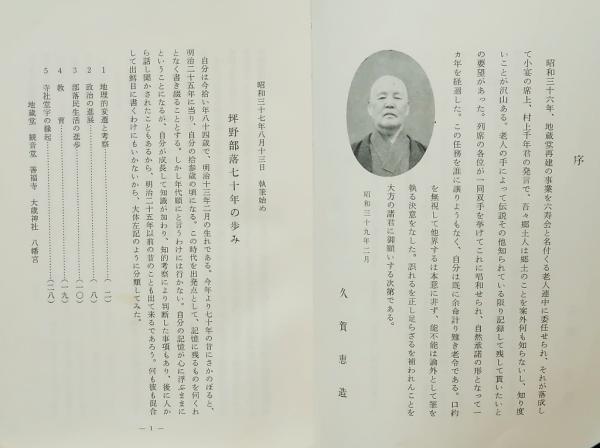 序
昭和三十六年、地蔵堂再建の事業を六寿会と名付くる老人連中に委任せられ、それが落成し
て小宴の席上、村上千年君の発言で、吾々郷土人は郷土のことを案外何も知らないし、知り度
いことが沢山ある。老人の手によって伝説その他知られている限り記録して残して貰いたいと
の要望があった。列席の各位が一同双手を挙げてこれに唱和せられ、自然承諾の形となって一
カ年を経過した。この任務を誰に譲りようもなく、自分は既に余命計り難き老令である。口約
を無視して他界するは本意に非ず、能不能は論外として筆を
執る決意をなした。誤れるを正し足らざるを補われんことを
大方の諸君に御願いする次第である。
昭和三十九年二月
久賀恵造
昭和三十七年八月十三日 執筆始め
坪野部落七十年の歩み
自分は今拾い年八十四歳で、明治十三年二月の生れである。今年より七十年の昔にさかのぼると、
明治二十五年に当り、自分の拾参歳の頃になる。この時代を出発点として、記憶に残るものを何くれ
となく書き綴ることとする。しかし年代順にと言うわけには行かない。自分の記憶が心に浮ぶままに
ということになるが、自分が成長して知識が加わり、知的考察により判断した事項もあり、後に人か
ら話し聞かされたこともあるから、明治二十五年以前の昔のことも出て来るであろう。何も彼も混合
して出鱈目に書くわけにもいかないから、大体左記のように分類してみた。
1 地理的変遷と考察……………………(二)
2 政治の進展……………………(八)
3 部落民生活の進歩……………………(一〇)
4 教育……………………(一九)
5 寺社堂宇の縁起……………………(二八)
地蔵堂 観音堂 善福寺 大歳神社 八幡宮
— 1 —